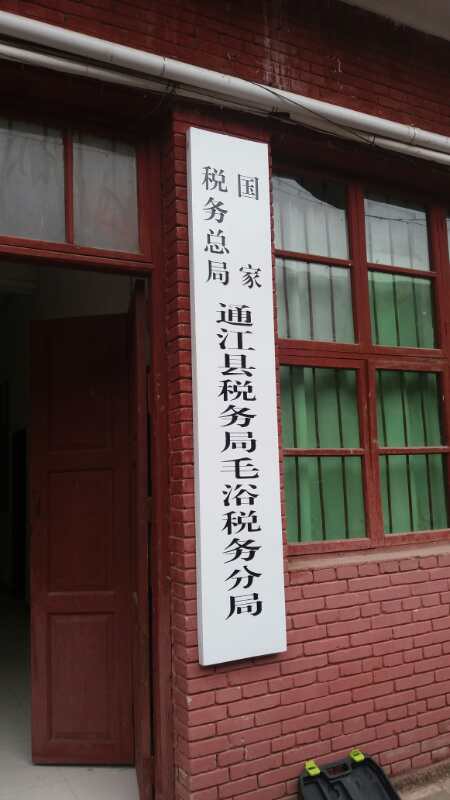 国家
税务总局
通江县税务局毛浴税务分局